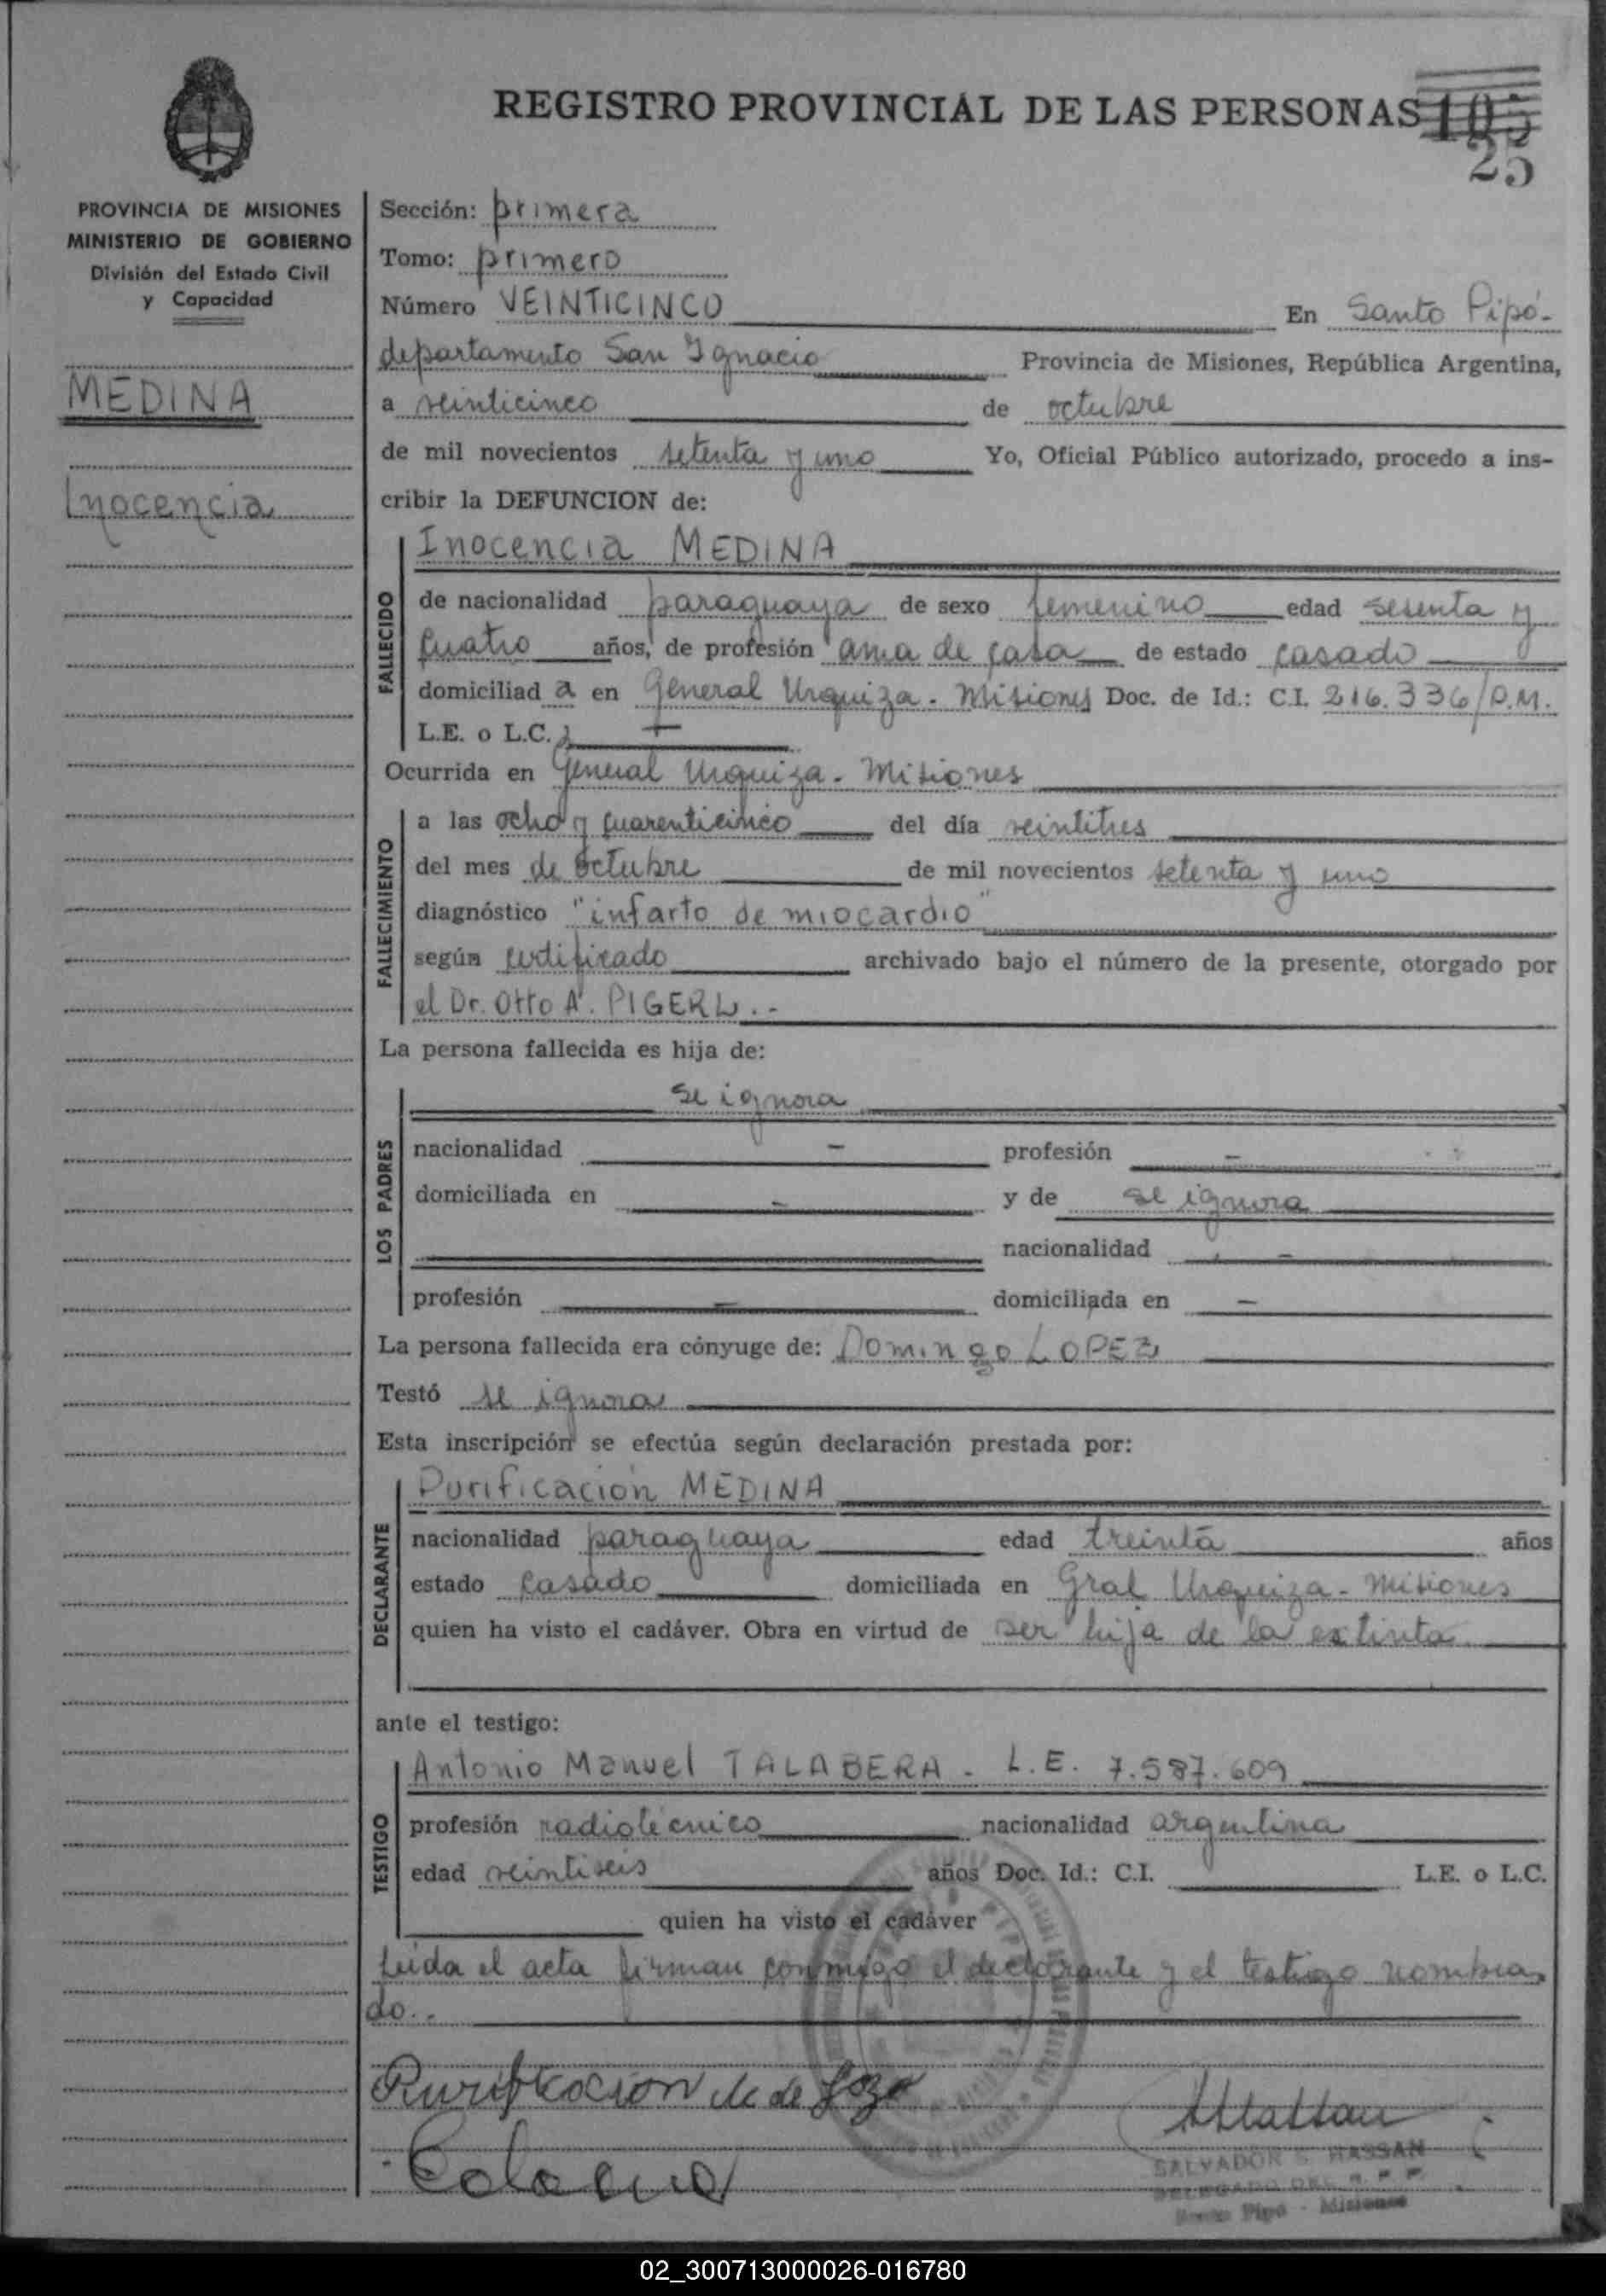 REGISTRO PROVINCIAL DE LAS PERSONAS 105
25
PROVINCIA DE MISIONES
MINISTERIO DE GOBIERNO
División del Estado Civil
y Capacidad
MEDINA
Inocencia
Sección: primera
Tomo: primero
Número VEINTICINCO En Santo Pipó.-
departamento San Ignacio Provincia de Misiones, República Argentina,
a veinticinco de octubre
de mil novecientos setenta y uno Yo, Oficial Público autorizado, procedo a ins-
cribir la DEFUNCION de:
FALLECIDO
Inocencia MEDINA
de nacionalidad paraguaya de sexo femenino edad sesenta y
cuatro años, de profesión ama de casa de estado casado
domiciliad a en General Urquiza. Misiones Doc. de Id.: C.I. 216.336/P.M.
L.E. o L.C.
Ocurrida en General Urquiza. Misiones
FALLECIMIENTO
a las ocho y cuarenticinco del día veintitres
del mes de octubre de mil novecientos setenta y uno
diagnóstico "infarto de miocardio"
según certificado archivado bajo el número de la presente, otorgado por
el Dr. Otto A. PIGERL.-
La persona fallecida es hija de:
LOS PADRES
se ignora
nacionalidad - profesión -
domiciliada en - y de se ignora
nacionalidad -
profesión - domiciliada en -
La persona fallecida era cónyuge de: Domingo LOPEZ
Testó se ignora
Esta inscripción se efectúa según declaración prestada por:
DECLARANTE
Purificación MEDINA
nacionalidad paraguaya edad treinta años
estado casado domiciliada en Gral Urquiza - Misiones
quien ha visto el cadáver. Obra en virtud de ser hija de la extinta
ante el testigo:
TESTIGO
Antonio Manuel TALABERA - L.E. 7.587.609
profesión radiotécnico nacionalidad argentina
edad veintiseis años Doc. Id.: C.I. L.E. o L.C.
quien ha visto el cadáver
Leida el acta firman conmigo el declarante y el testigo nombra
do.-
Purificacion M de
SALVADOR S. HASSAN
DELEGADO DEL R. P. P.
Santo Pipó - Misiones
02_300713000026-016780